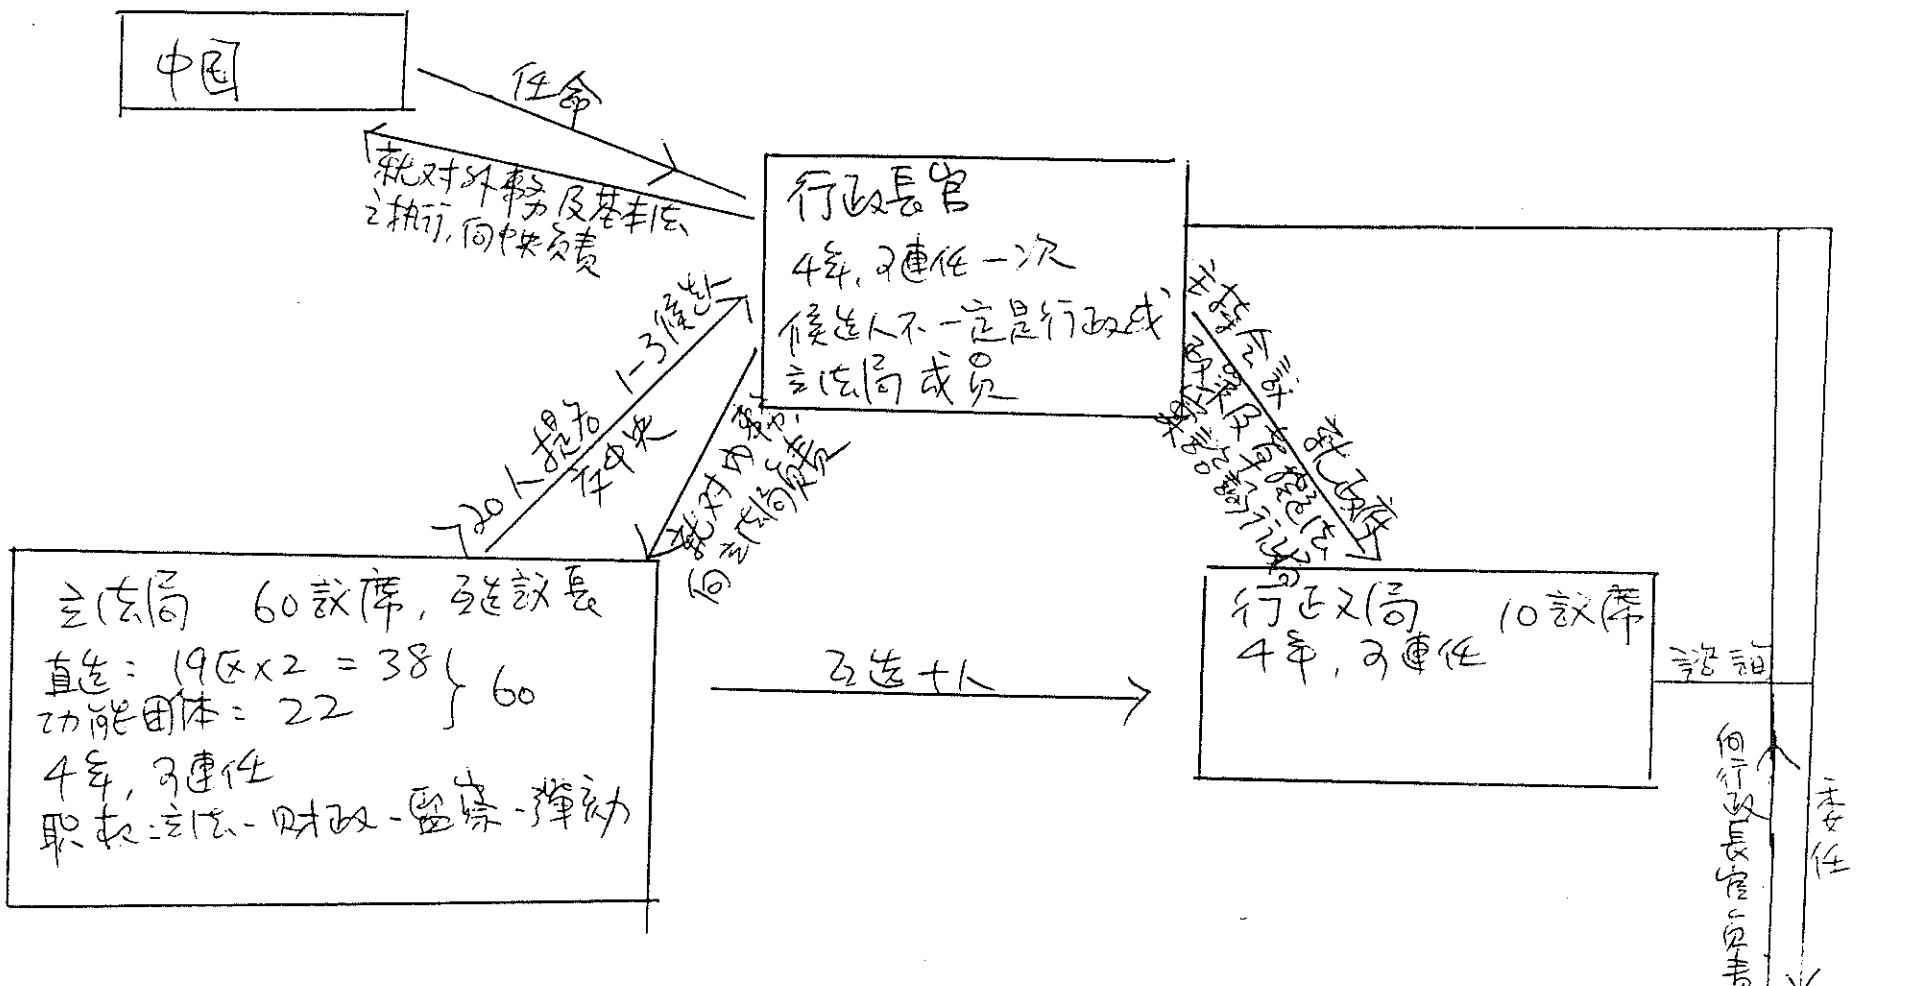 中国
任命
就对外事務及基本法
之执行,向中央負責
行政長官
4年,可連任一次
候选人不一定是行政或
立法局成員
>20人提名 1-3候选人
任中央
就对内事務,
向立法局負責
主持会议 就政府
立法局 60議席,互选議長
直选: 19区×2 = 38 } 60
功能团体: 22
4年,可連任
职权:立法-財政-監察-彈劾
互选十人
行政局 10議席
4年,可連任
諮詢
向行政長官負責
委任